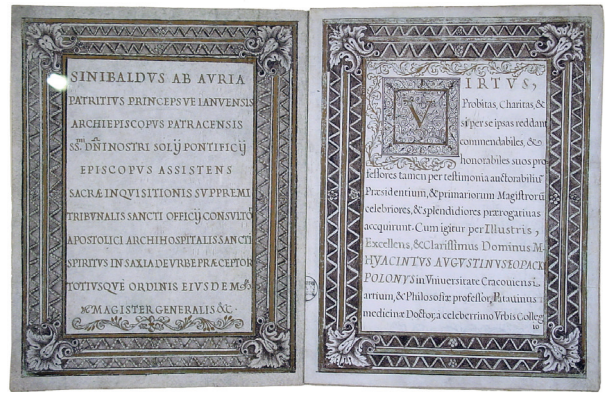 SINIBALDVS AB AVRIA
PATRITIVS PRINCEPSVE IANVENSIS
ARCHIEPISCOPVS PATRACENSIS
SSmi DÑI NOSTRI SOLIJ PONTIFICIJ
EPISCOPVS ASSISTENS
SACRÆ INQVISITIONIS SVPPREMI
TRIBVNALIS SANCTI OFFICIJ CONSVLTOR
APOSTOLICI ARCHIHOSPITALIS SANCTI
SPIRITVS IN SAXIA DE VRBE PRÆCEPTOR
TOTIVSQVE ORDINIS EIVSDEM
MAGISTER GENERALIS &c.
VIRTVS,
Probitas, Charitas, &
si per se ipsas reddant
commendabiles, &
honorabiles suos pro
fessores tamen per testimonia auctorabilium
Præsidentium, & primariorum Magistrorū
celebriores, & splendidiores prærogatiuas
acquirunt. Cum igitur per Illustris,
Excellens, & Clarissimus Dominus M.
HYACINTVS AVGVSTINVS EOPACKI
POLONVS in Vniuersitate Cracouiensi
artium, & Philosofiæ professor, Patauinus
medicinæ Doctor, a celeberrimo Vrbis Colleg
io